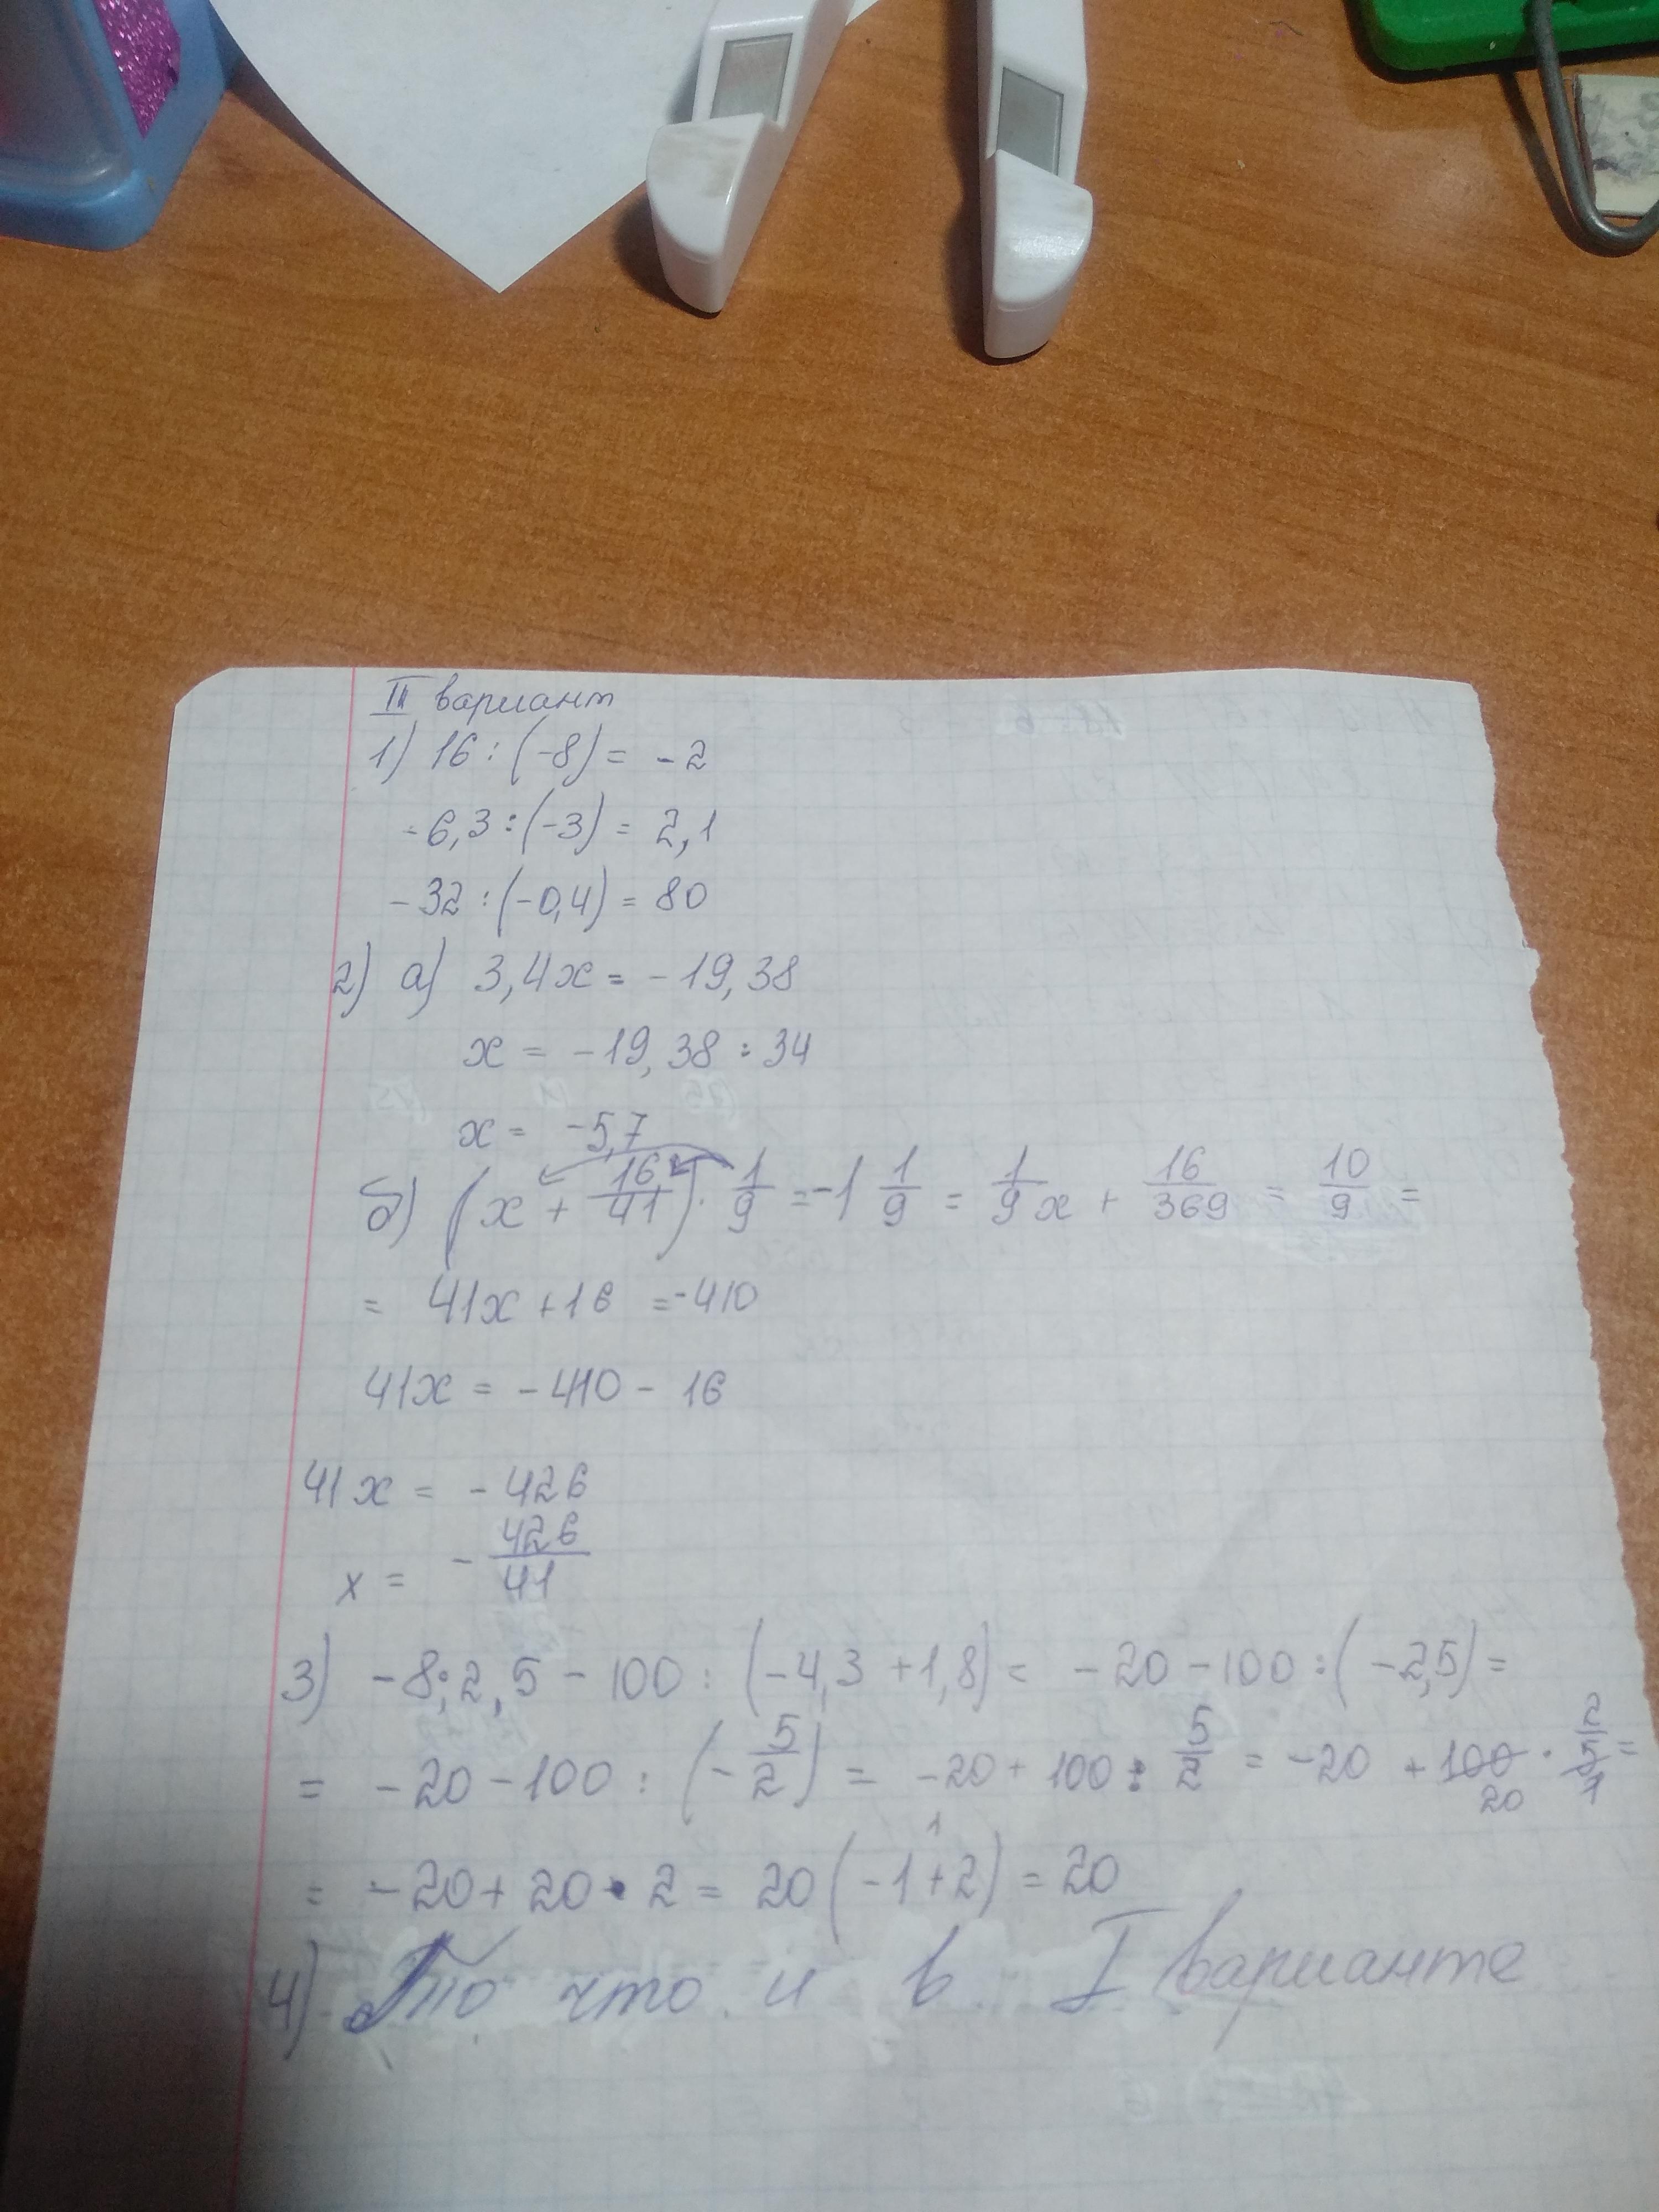 III вариант
1) 16 : (-8) = -2
-6,3 : (-3) = 2,1
-32 : (-0,4) = 80
2) а) 3,4x = -19,38
x = -19,38 : 34
x = -5,7
б) (x + 16/41) · 1/9 = -1 1/9 = 1/9 x + 16/369 = 10/9 =
= 41x + 16 = -410
41x = -410 - 16
41x = -426
x = - 426/41
3) -8 : 2,5 - 100 : (-4,3 + 1,8) = -20 - 100 : (-2,5) =
= -20 - 100 : (- 5/2) = -20 + 100 : 5/2 = -20 + 100 20 · 2/5 1 =
= -20 + 20 · 2 = 20 (-1 + 2) 1 = 20
4) То что и в I варианте